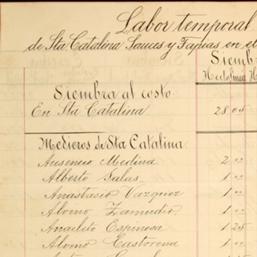 Labor temporal
de Sta Catalina Sauces y Tapias en el
Siembr
Hectolitros H
Siembra al costo
En Sta Catalina 28 05
Medieros de Sta Catalina
Ausencio Medina 2 00
Alberto Salas 1 00
Anastacio Vazquez 1 00
Alvino Zamudio 1 00
Anacleto Espinosa 1 25
Alonso Castorena 1